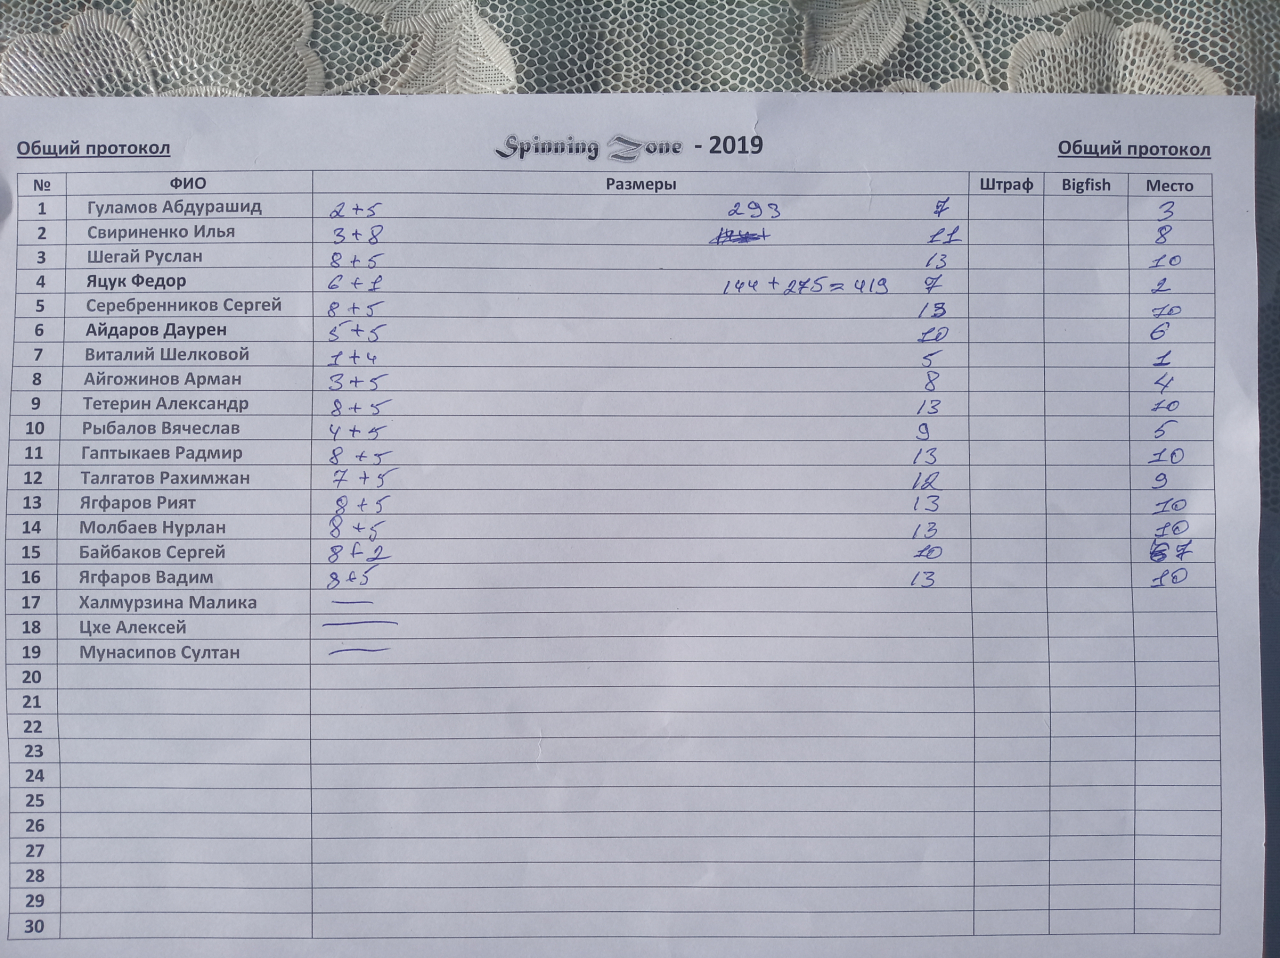 Общий протокол Spinning Zone - 2019 Общий протокол
№ ФИО Размеры Штраф Bigfish Место
1 Гуламов Абдурашид 2+5 293 7 3
2 Свириненко Илья 3+8 11 8
3 Шегай Руслан 8+5 13 10
4 Яцук Федор 6+1 144+275=419 7 2
5 Серебренников Сергей 8+5 13 10
6 Айдаров Даурен 5+5 10 6
7 Виталий Шелковой 1+4 5 1
8 Айгожинов Арман 3+5 8 4
9 Тетерин Александр 8+5 13 10
10 Рыбалов Вячеслав 4+5 9 5
11 Гаптыкаев Радмир 8+5 13 10
12 Талгатов Рахимжан 7+5 12 9
13 Ягфаров Рият 8+5 13 10
14 Молбаев Нурлан 8+5 13 10
15 Байбаков Сергей 8+2 10 7
16 Ягфаров Вадим 8+5 13 10
17 Халмурзина Малика —
18 Цхе Алексей —
19 Мунасипов Султан —
20
21
22
23
24
25
26
27
28
29
30